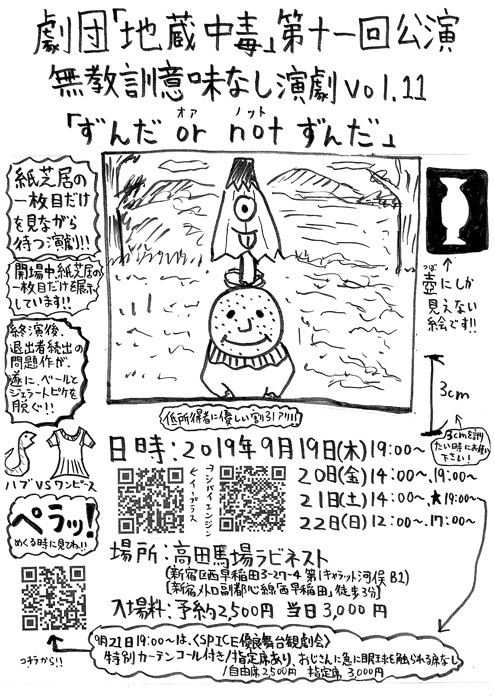 劇団「地蔵中毒」第十一回公演
無教訓意味なし演劇vol.11
オア ノット
「ずんだ or not ずんだ」
紙芝居の
一枚目だけ
を見ながら
待つ演劇!!
開場中紙芝居の
一枚目だけを展示
しています!!
終演後、
退出者続出の
問題作が、
遂に、ベールと
ジェラートピケを
脱ぐ!!
ハブVSワンピース
ペラッ!
めくる時に見てね!!
コチラから!!
つぼ
壺にしか
見えない
絵です!!
3cm
3cmを測り
たい時にお使い
下さい!
低所得者に優しい割引アリ!!
日時:2019年9月19日(木)19:00〜
20日(金)14:00〜、19:00〜
21日(土)14:00〜、★19:00〜
22日(日)12:00〜、17:00〜
イープラス
コンパイエンジン
場所:高田馬場ラビネスト
(新宿区西早稲田3-27-4 第1キャラット河俣B1)
(新宿メトロ副都心線「西早稲田」徒歩3分)
入場料:予約2,500円 当日3,000円
9月21日19:00〜は、〈SPICE優良舞台観劇会〉
特別カーテンコール付き/指定席あり、おじさんに急に眼球を触られる席なし
/自由席2,500円 指定席3,000円